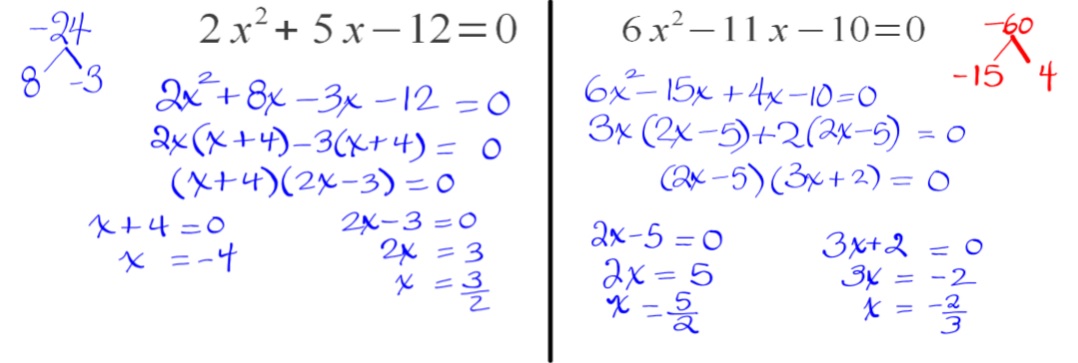 -24
8 -3
2x² + 5x - 12 = 0
2x² + 8x - 3x - 12 = 0
2x(x + 4) - 3(x + 4) = 0
(x + 4)(2x - 3) = 0
x + 4 = 0
x = -4
2x - 3 = 0
2x = 3
x = 3/2
6x² - 11x - 10 = 0
-60
-15 4
6x² - 15x + 4x - 10 = 0
3x(2x - 5) + 2(2x - 5) = 0
(2x - 5)(3x + 2) = 0
2x - 5 = 0
2x = 5
x = 5/2
3x + 2 = 0
3x = -2
x = -2/3